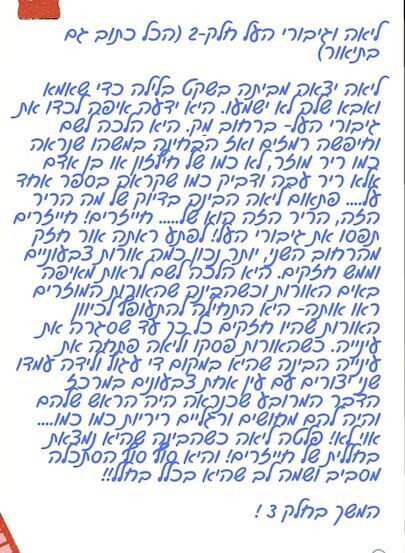 ליאה וגיבורי העל חלק-2 (הכל כתוב גם
בתיאור)
ליאה יצאה מביתה בשקט בלילה כדי שאמא
ואבא שלה לא ישמעו. היא ידעה איפה לכדו את
גיבורי העל- ברחוב מק. היא הלכה לשם
וחיפשה רמזים ואז הבחינה במשהו שנראה
כמו ריר מוזר, לא כמו של חילזון או בן אדם
אלא ריר עבה ודביק כמו שקראה בספר אחד
על.... פתאום ליאה הבינה בדיוק של מה הריר
הזה, הריר הזה הוא של..... חייזרים! חייזרים
תפסו את גיבורי העל! לפתע ראתה אור חזק
מהרחוב השני, יותר נכון כמה אורות צבעוניים
וממש חזקים. היא הלכה לשם לראות מאיפה
באים האורות וכשהבינה שהאורות המוזרים
ראו אותה- היא התחילה להתעופף לכיוון
האורות שהיו חזקים כל כך עד שסגרה את
עינייה. כשהאורות פסקו וליאה פתחה את
עינייה הבינה שהיא במקום די עגול ולידה עמדו
שני יצורים עם עין אחת צבעונים במרכז
הדבר המרובע שכנראה היה הראש שלהם
והיה להם מחושים ורגליים ריריות כמו כמו....
אוי לא! פלטה ליאה כשהבינה שהיא נמצאת
בחללית של חייזרים! והיא סוף סוף הסתכלה
מסביב ושמה לב שהיא בכלל בחלל!!
המשך בחלק 3 !